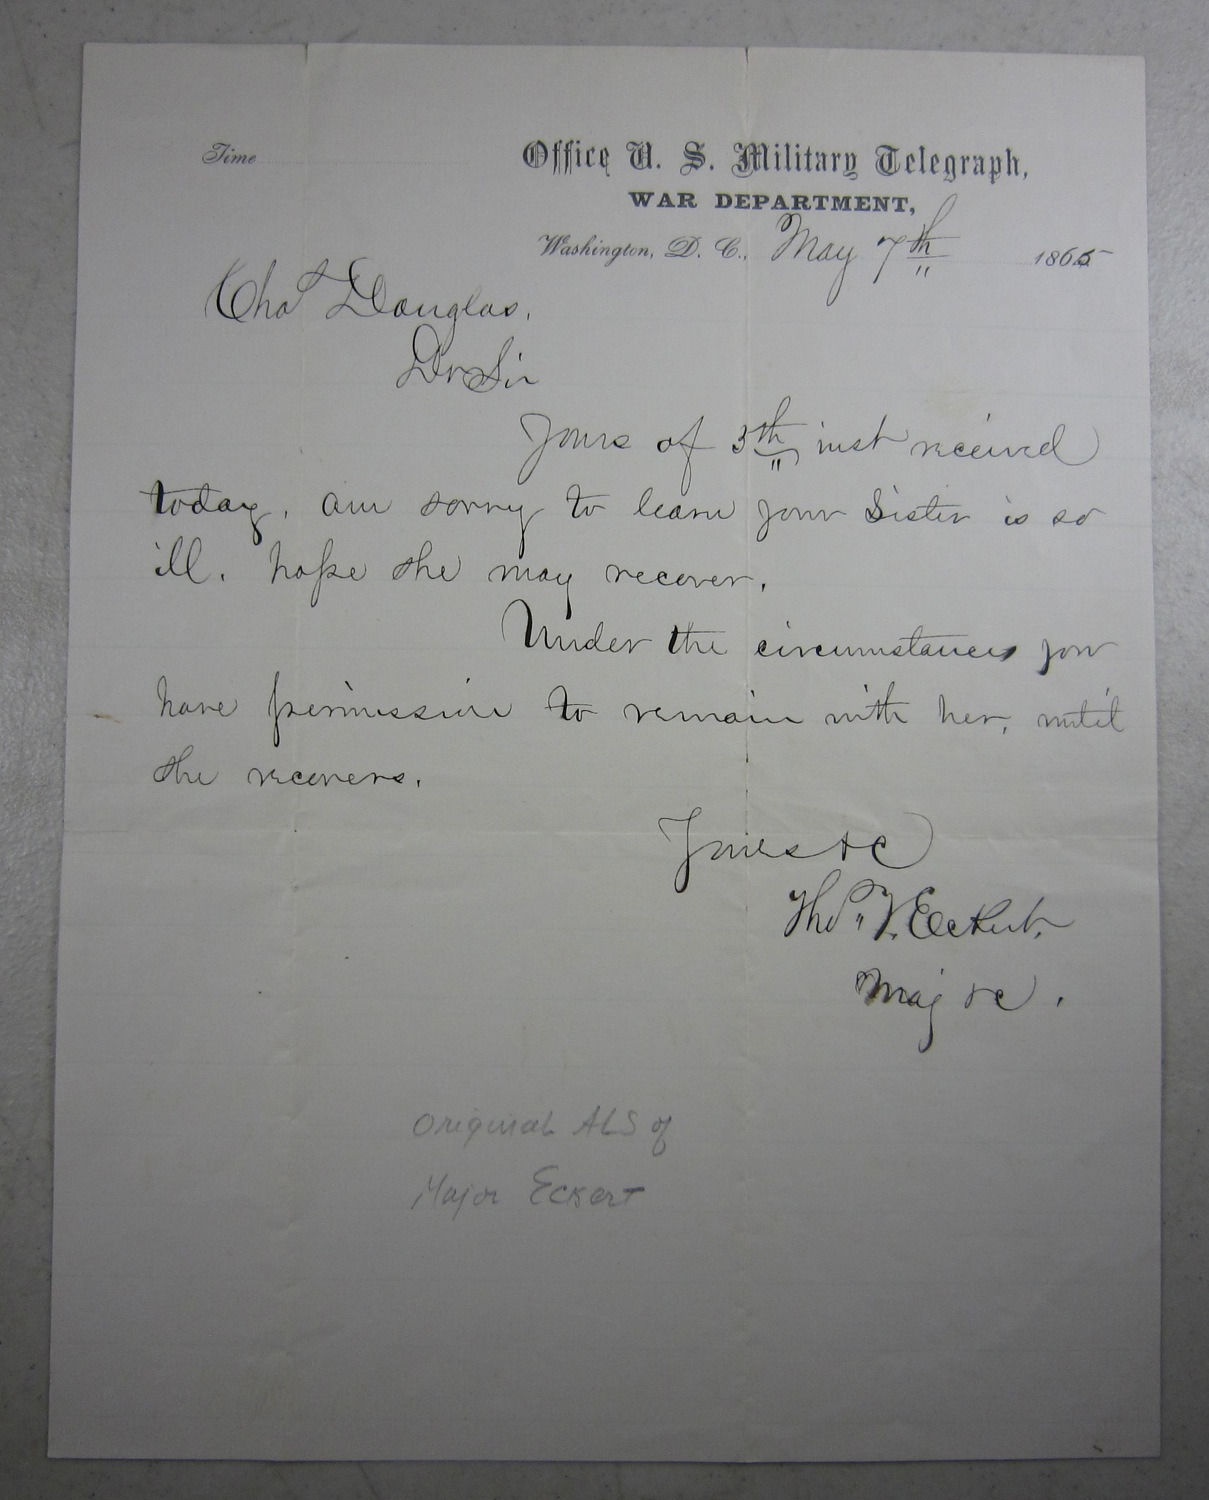 Time
Office U. S. Military Telegraph,
WAR DEPARTMENT,
Washington, D. C., May 7th 1865
Chas Douglas,
Dr Sir
Yours of 5th inst received
today, am sorry to learn your Sister is so
ill. hope she may recover.
Under the circumstances you
have permission to remain with her, until
she recovers.
Yours &c
Thos. T. Eckert.
Maj &c.
Original ALS of
Major Eckert